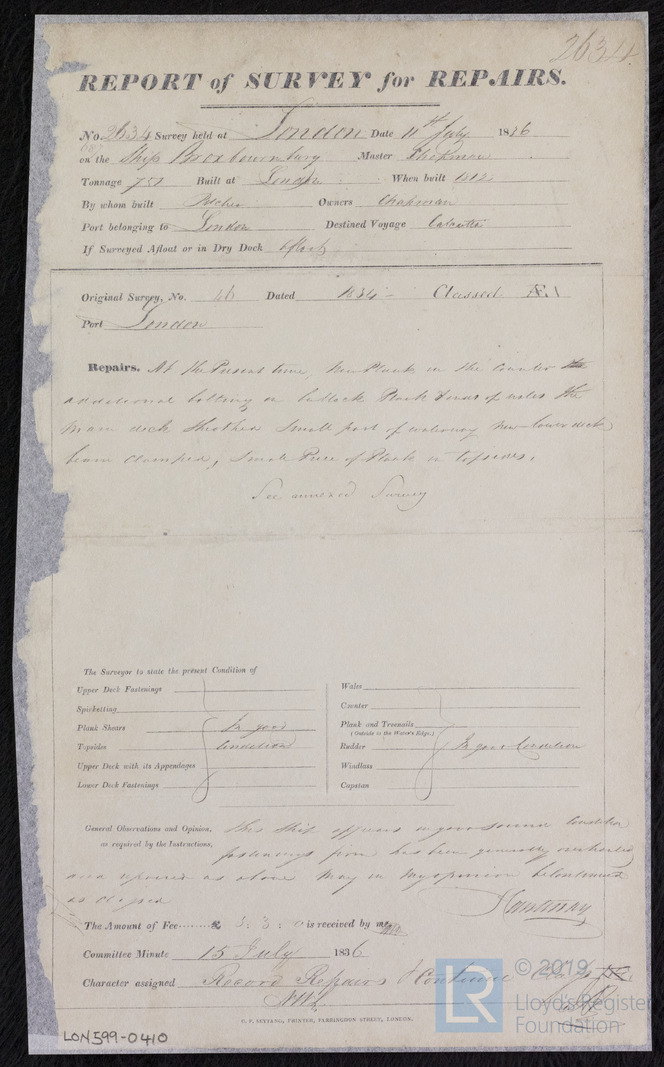 2634
REPORT of SURVEY for REPAIRS.
No. 2634 Survey held at London Date 11th July 1836
on the Ship Broxbournbury Master Chapman
Tonnage 751 Built at London When built 1812
By whom built Pitcher Owners Chapman
Port belonging to London Destined Voyage Calcutta
If Surveyed Afloat or in Dry Dock Afloat
Original Survey, No. 46 Dated 1834 Classed Æ.1
Port London
Repairs. At the Present time, New Plank in the Counter
additional bolting in Plank of wales the
Main deck Sheathed Small part of waterway New lower deck
beam clamped, Small Piece of Plank in topsides.
See annexed Survey
The Surveyor to state the present Condition of
Upper Deck Fastenings
Spirketting
Plank Shears In good
Topsides Condition
Upper Deck with its Appendages
Lower Deck Fastenings
Wales
Counter
Plank and Treenails
(Outside to the Water's Edge.)
Rudder In good Condition
Windlass
Capstan
General Observations and Opinion, This Ship appears in good sound Condition
as required by the Instructions, fastenings firm has been generally overhauled
and repaired as above May in my opinion be continued
as Classed
The Amount of Fee £ 3 : 3 : 0 is received by me,
Committee Minute 15 July 1836
Character assigned Record Repairs & Continue
C. F. SEYFANG, PRINTER, FARRINGDON STREET, LONDON.
LON599-0410
LR
© 2019
Lloyd's Register
Foundation